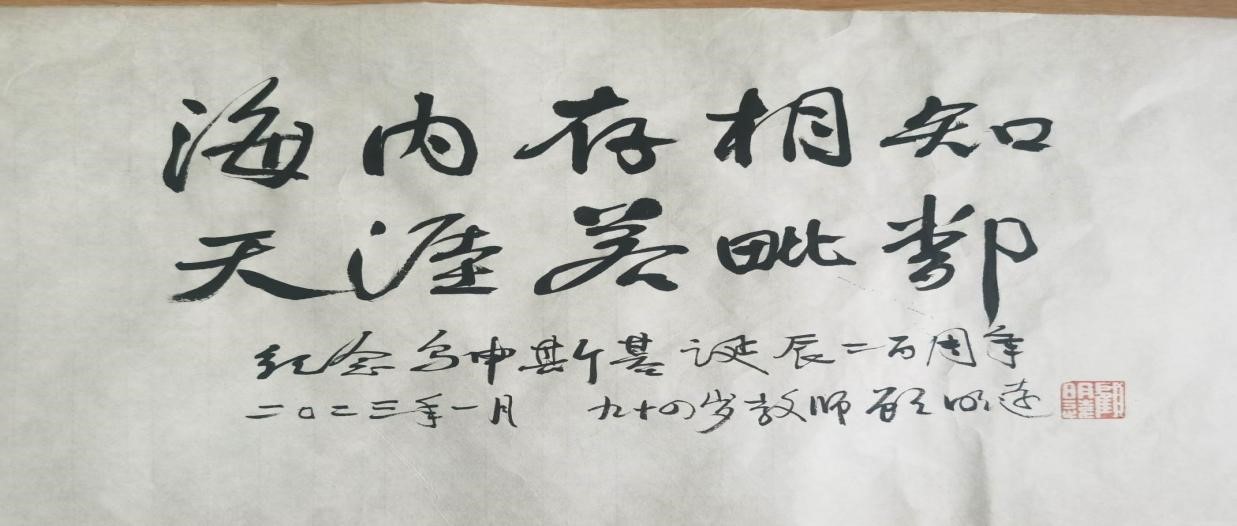 海内存相知
天涯若毗邻
纪念乌申斯基诞辰二百周年
二〇二三年一月 九十四岁教师顾明远
顾明远